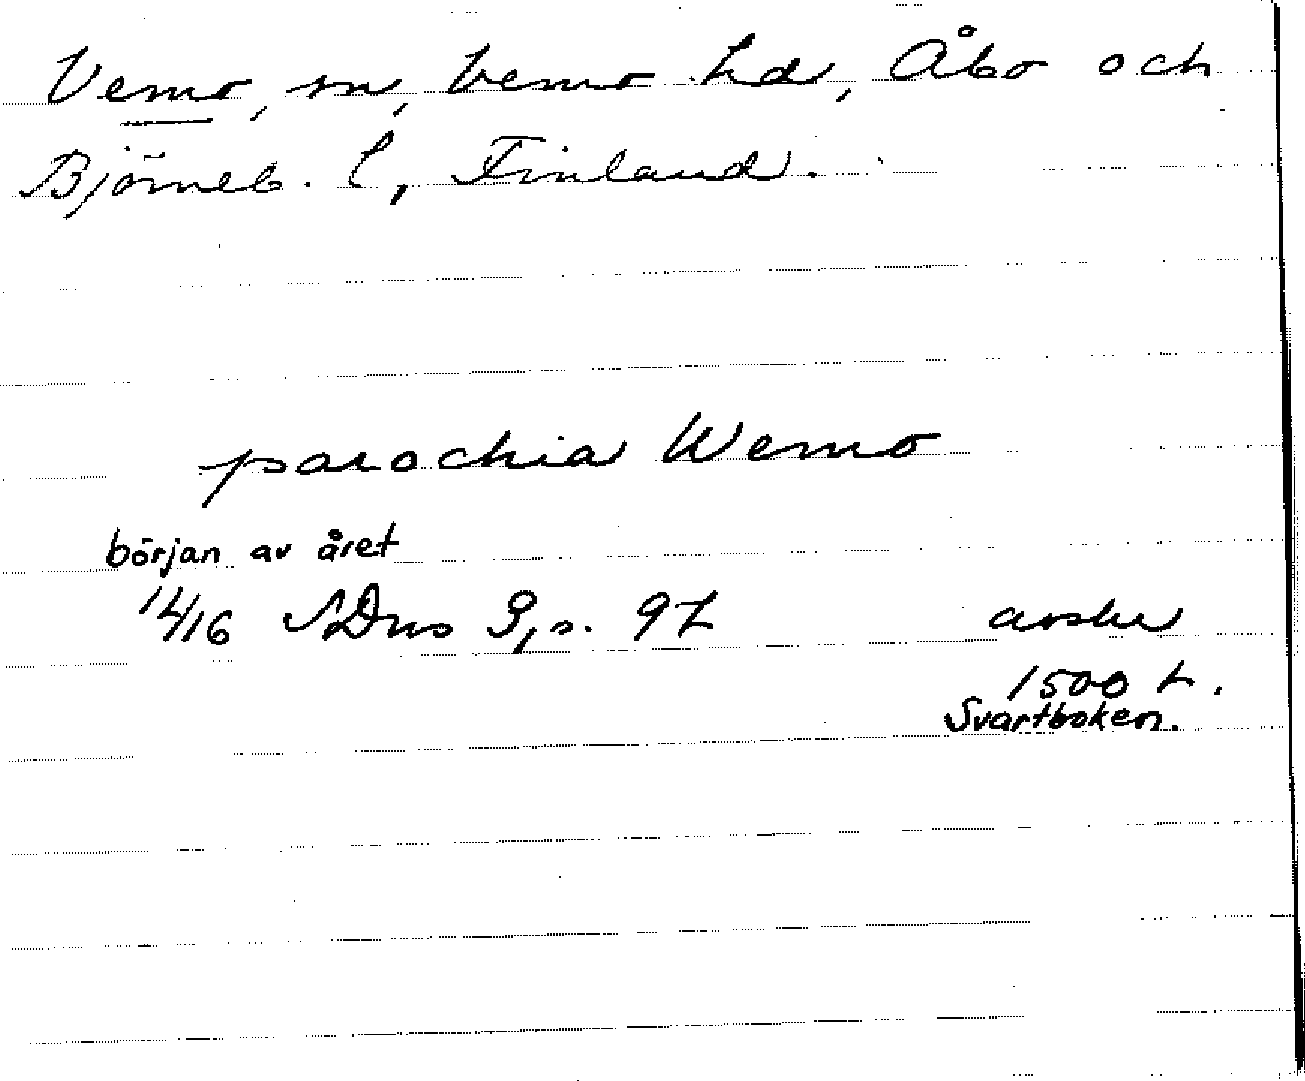 Vemo, sn, Vemo hd, Åbo och
Björneb. l, Finland.
parochia Wemo
början av året
1416 SDns 3, s. 97 avskr
1500 t.
Svartboken.